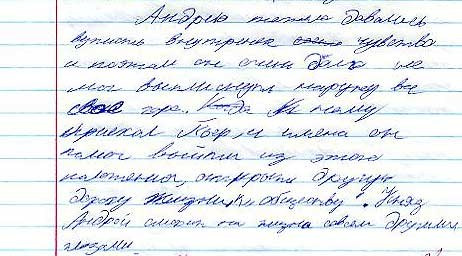 Андрею тяжело давались
внутренние чувства
и поэтому он очень долго не
мог выплеснуть наружу все
свое горе. Когда к нему
приехал Пьер, и именно он
помог выйти из этого
состояния, открыть другую
дорогу жизни к обществу. Князь
Андрей смотрит на жизнь совсем другими
глазами